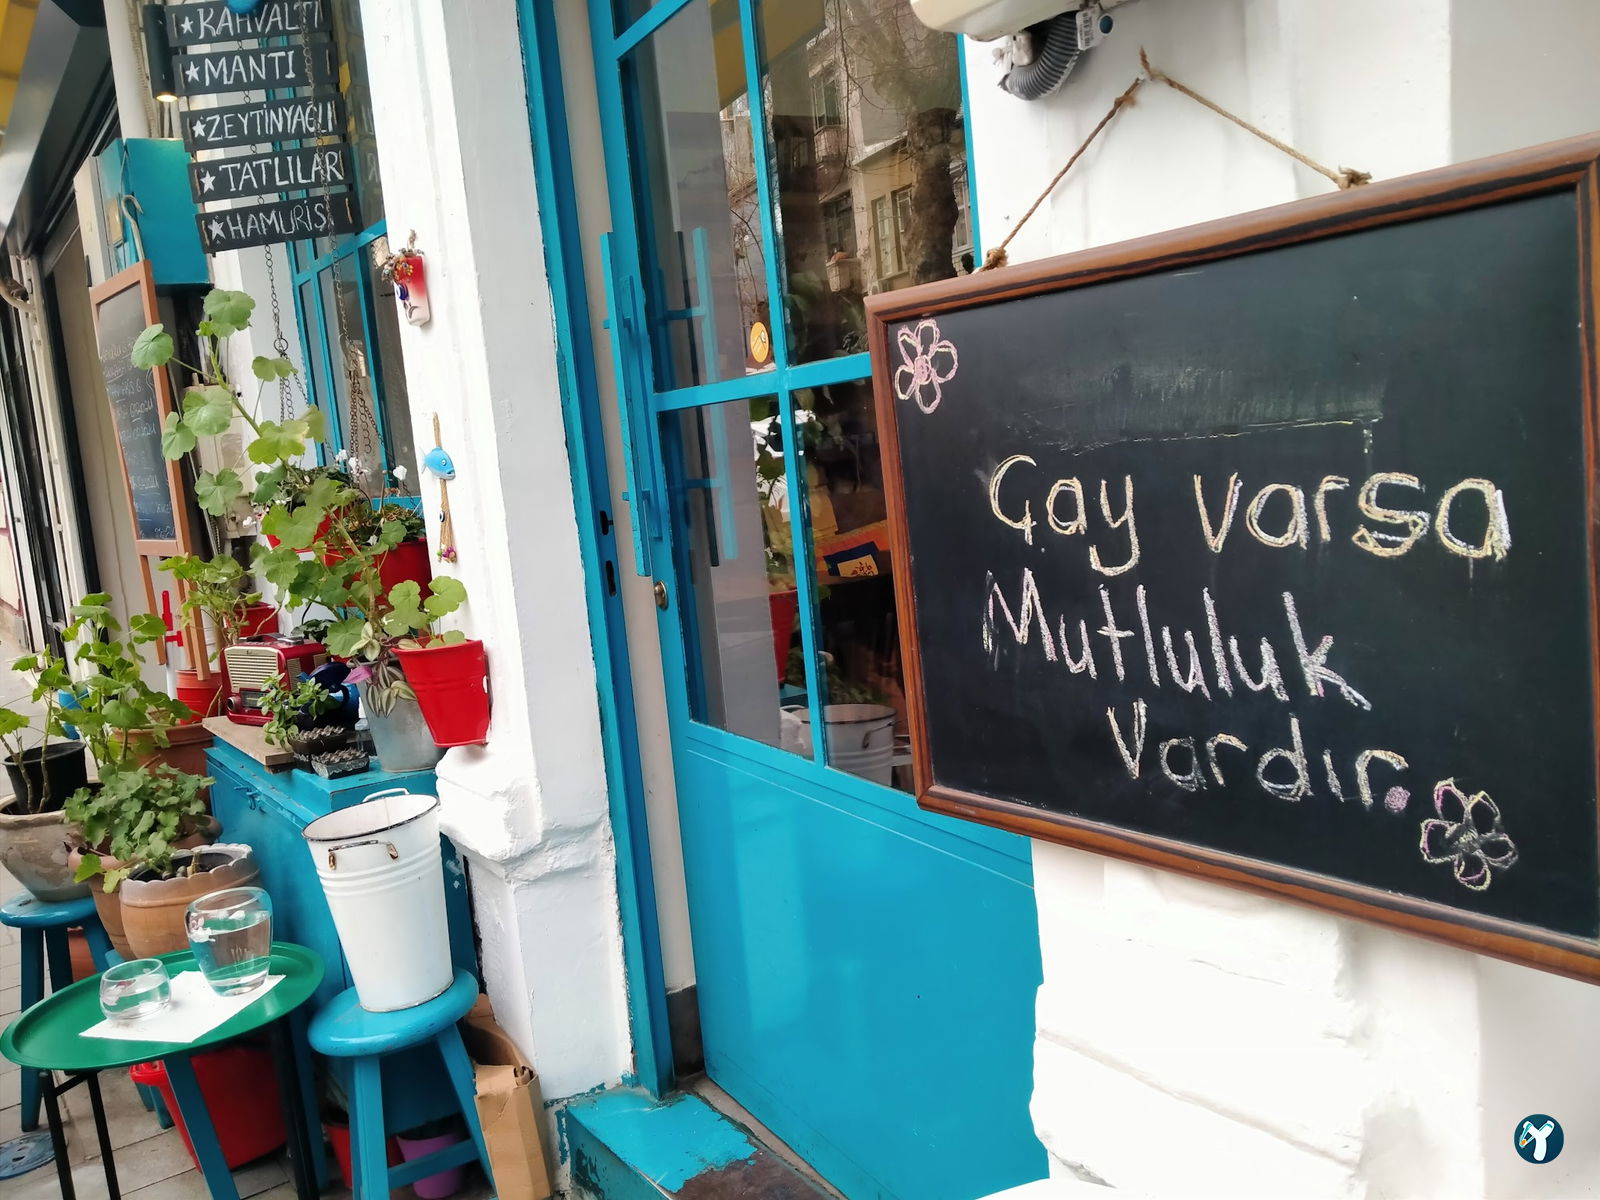 KAHVALTI
MANTI
ZEYTİNYAĞLI
TATLILAR
HAMURİŞ
Çay varsa
Mutluluk
Vardır.